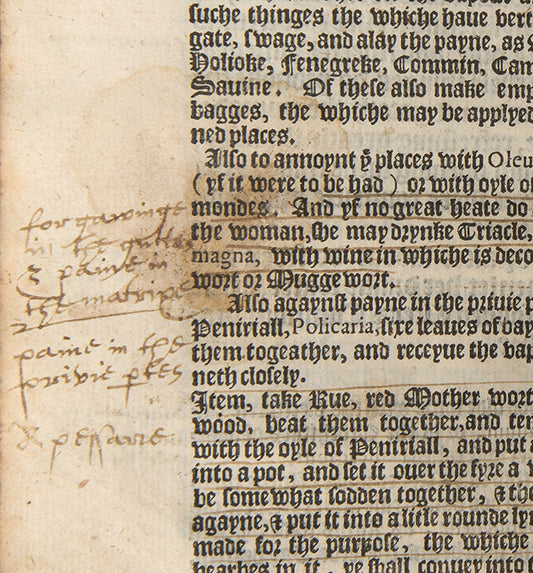 suche thinges the whiche haue vert
gate, swage, and alay the payne, as
Holioke, Fenegreke, Commin, Cam
Sauine. Of these also make emp
bagges, the whiche may be applyed
ned places.
Also to annoynt yͤ places with Oleu
(yf it were to be had) or with oyle of
mondes. And yf no great heate do
the woman, she may drynke Triacle,
magna, with wine in whiche is deco
wort or Mugge wort.
Also agaynst payne in the priuie p
Peniriall, Policaria, sixe leaues of bay
them togeather, and receyue the vap
neth closely.
Item, take Rue, red Mother wort
wood, beat them together, and tem
with the oyle of Peniriall, and put a
into a pot, and set it ouer the fyre a
be somewhat sodden together, & the
agayne, & put it into a litle rounde lyn
made for the purpose, the whiche
hearbes in it, ye shall conuey into t
for gawinge
in the gutts
& paine in
the matripe
paine in the
privie ptes
pessarie